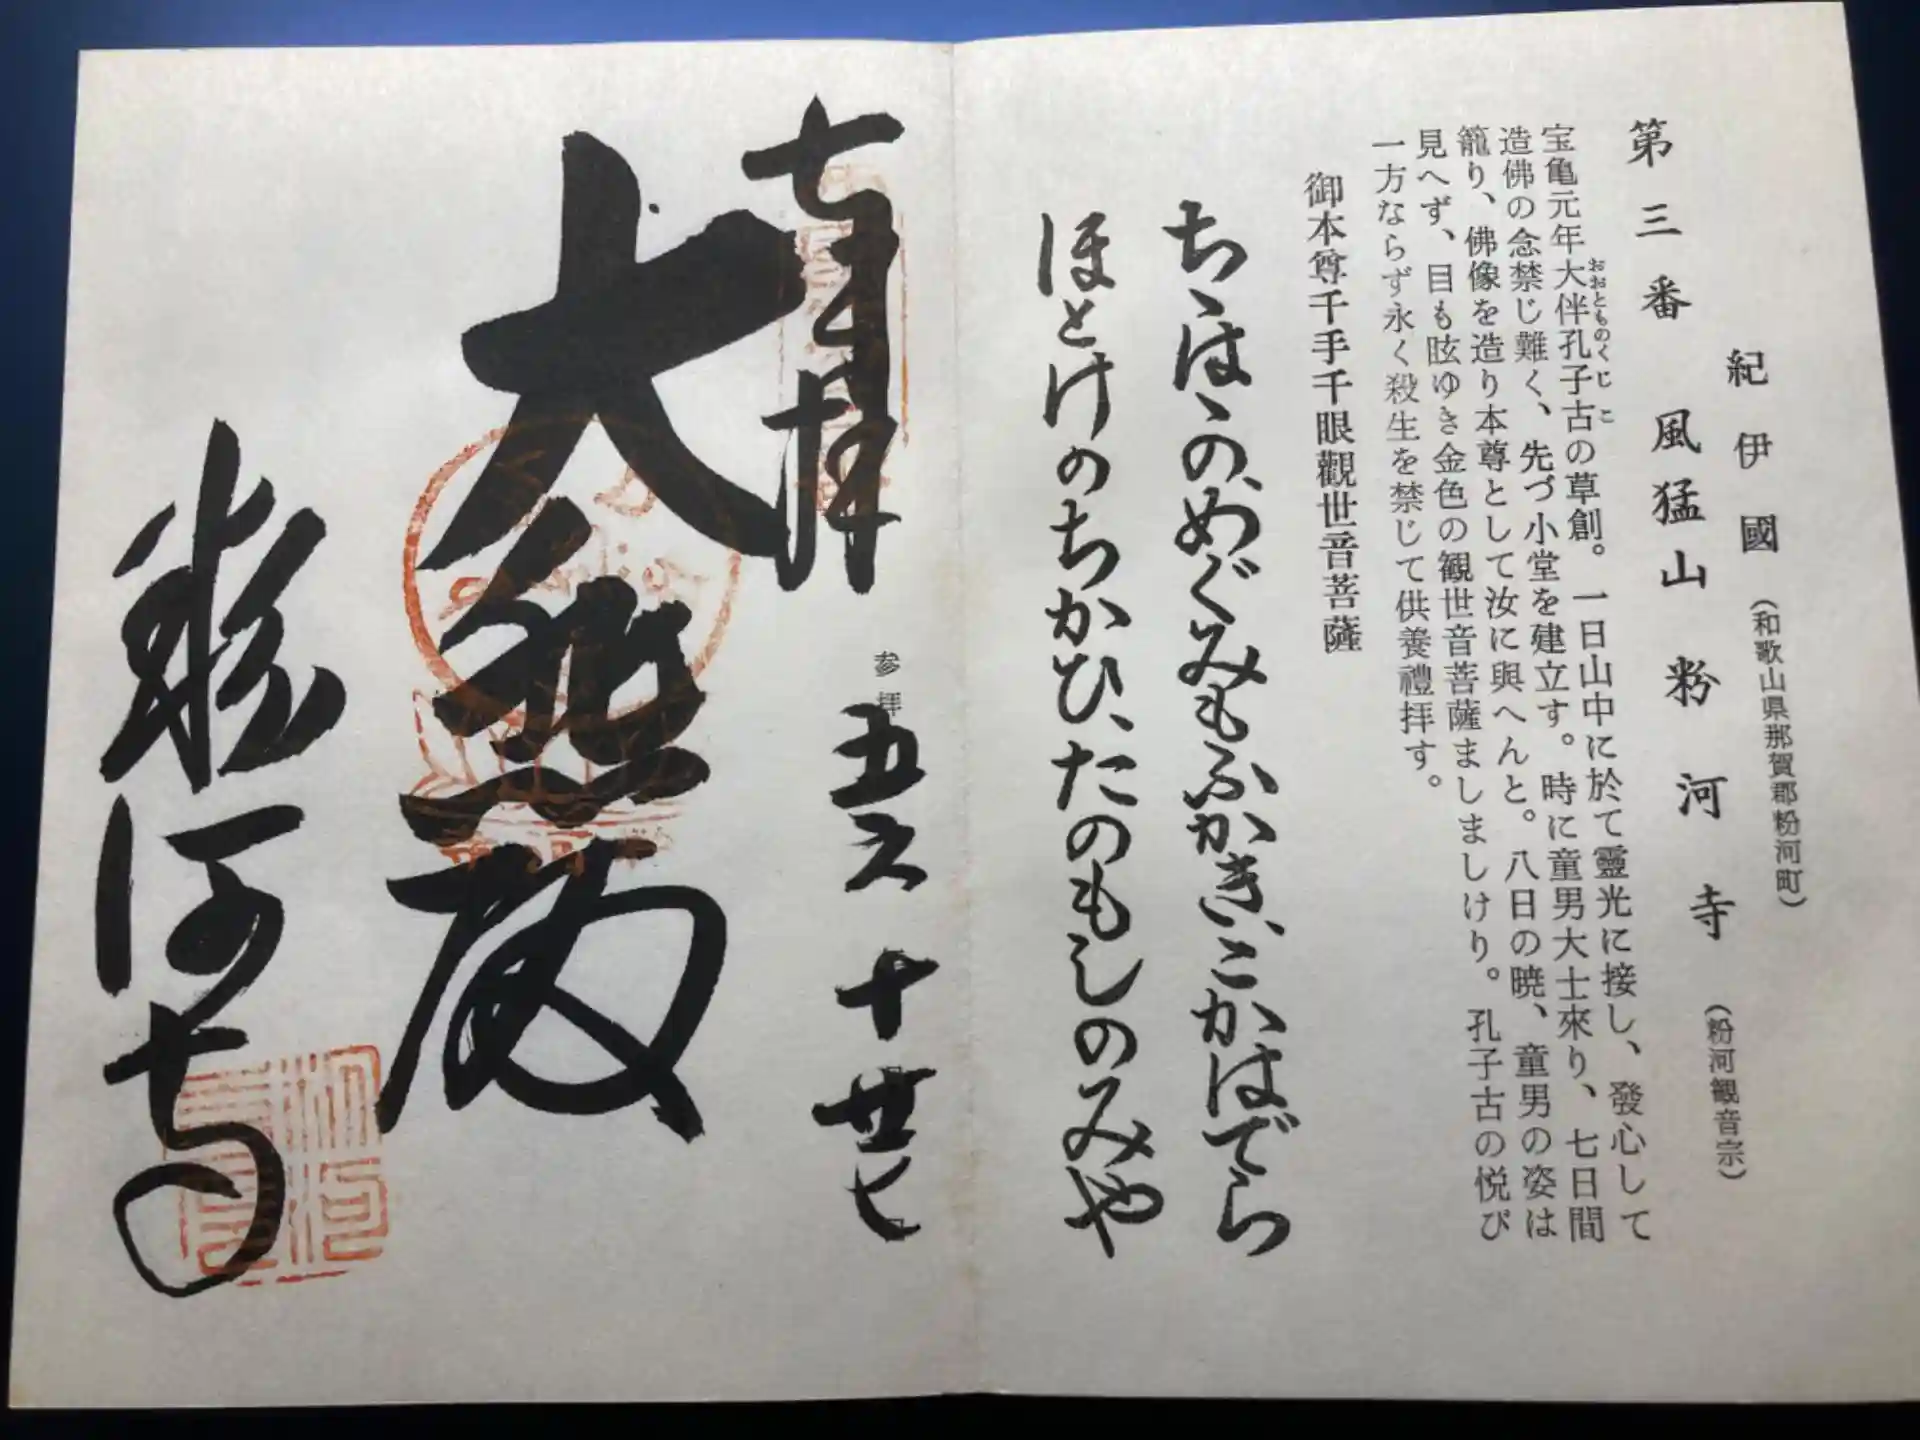 紀伊國（和歌山県那賀郡粉河町）
第三番 風猛山 粉河寺（粉河観音宗）
宝亀元年大伴孔子古の草創。一日山中に於て靈光に接し、發心して
おおとものくじこ
造佛の念禁じ難く、先づ小堂を建立す。時に童男大士來り、七日間
籠り、佛像を造り本尊として汝に與へんと。八日の暁、童男の姿は
見へず、目も眩ゆき金色の観世音菩薩ましましけり。孔子古の悦び
一方ならず永く殺生を禁じて供養禮拝す。
御本尊千手千眼觀世音菩薩
ちゝはゝの、めぐみもふかき、こかはでら
ほとけのちかひ、たのもしのみや
奉拝
参拝
五六 十 廿七
大悲殿
粉河寺